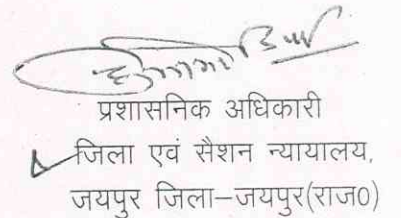 प्रशासनिक अधिकारी
जिला एवं सैशन न्यायालय,
जयपुर जिला–जयपुर(राज0)